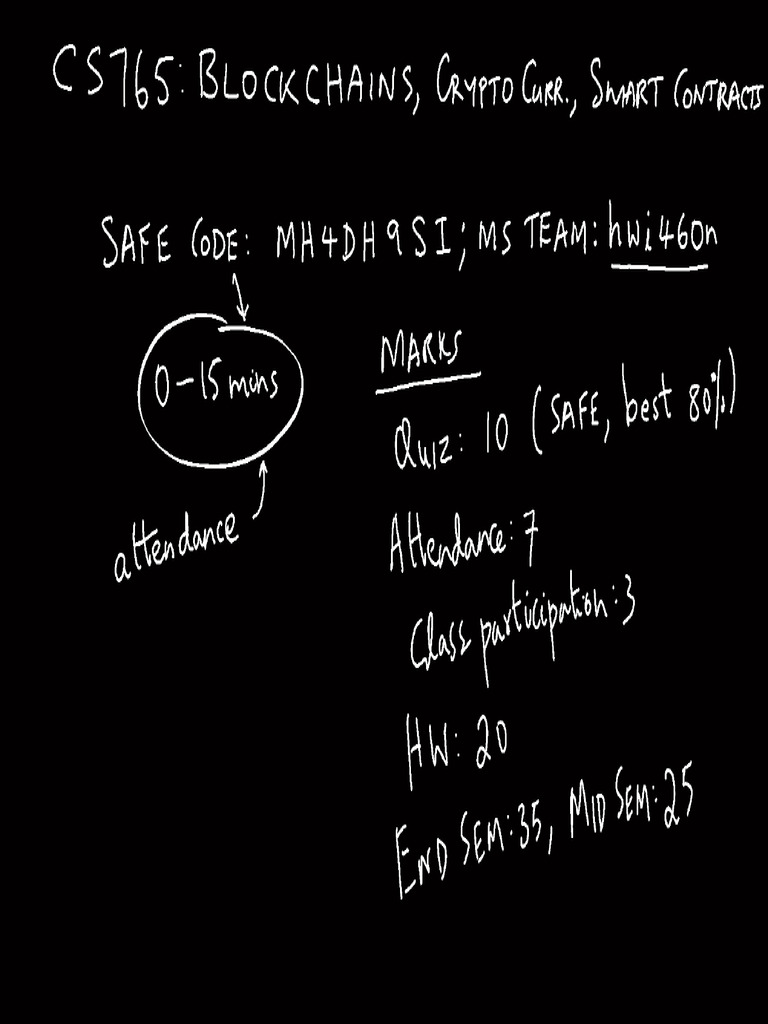 CS765: BLOCKCHAINS, CRYPTO CURR., SMART CONTRACTS
SAFE CODE: MH4DH9SI; MS TEAM: hwi460n
0-15 mins
attendance
MARKS
Quiz: 10 (SAFE, best 80%)
Attendance: 7
Class participation: 3
HW: 20
END SEM: 35, MID SEM: 25